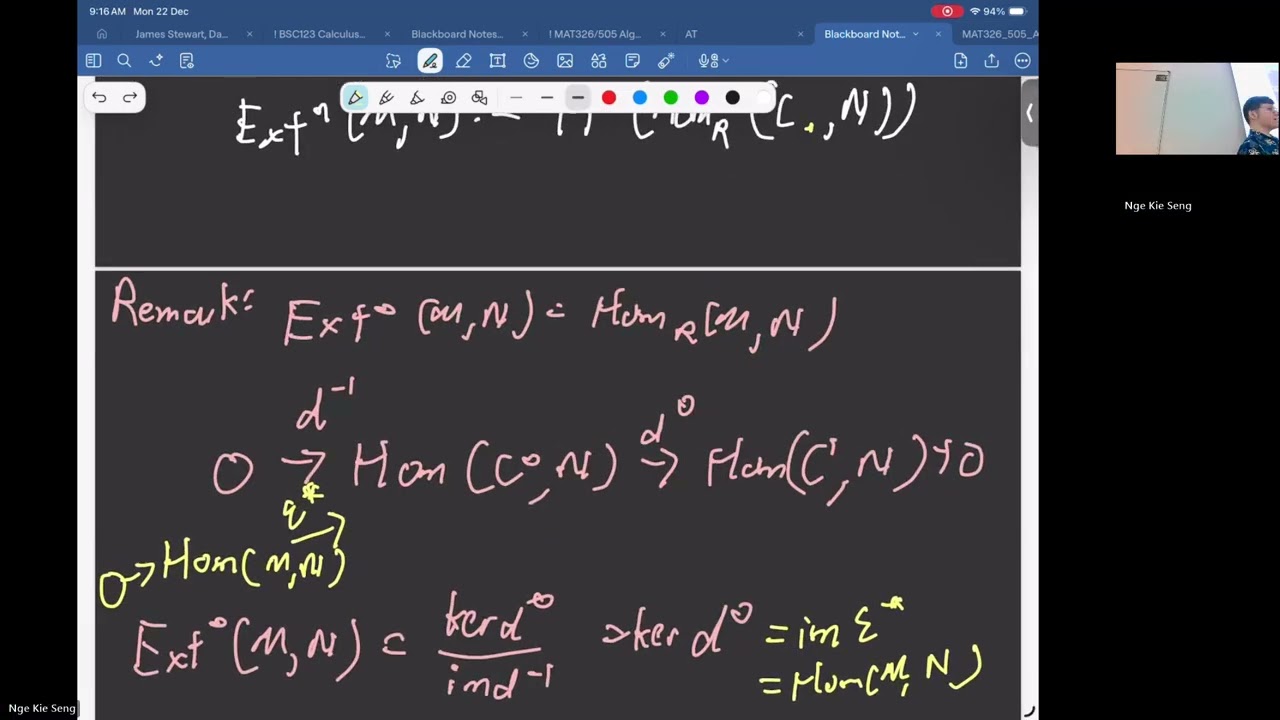 9:16 AM Mon 22 Dec
94%
James Stewart, Da...
! BSC123 Calculus...
Blackboard Notes...
! MAT326/505 Alg...
AT
Blackboard Not...
MAT326_505_A
Extⁿ (M,N) := Hⁿ (Hom_R (C.,N))
Remark: Ext⁰ (M,N) = Hom_R (M,N)
0 →^{d⁻¹} Hom (C⁰,N) →^{d⁰} Hom(C¹,N) → 0
0 → Hom(M,N) →^{ε*}
Ext⁰(M,N) = ker d⁰ / im d⁻¹ = ker d⁰ = im Σ*
= Hom(M,N)
Nge Kie Seng
Nge Kie Seng